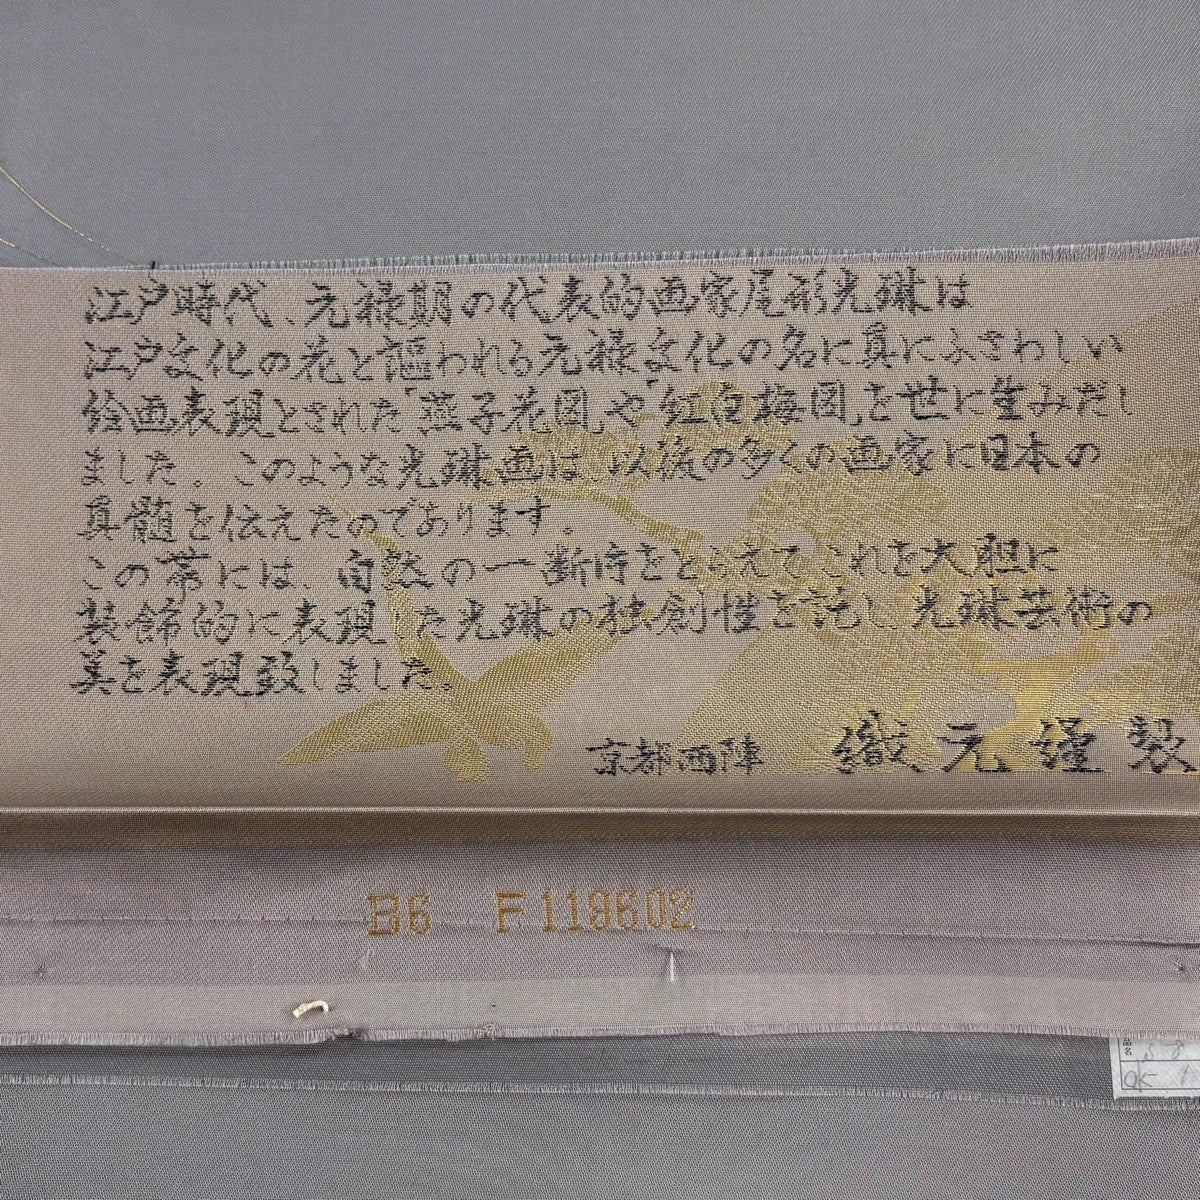 江戸時代、元禄期の代表的画家尾形光琳は
江戸文化の花と謳われる元禄文化の名に真にふさわしい
絵画表現とされた「燕子花図」や「紅白梅図」を世に生みだし
ました。このような光琳画は、以後の多くの画家に日本の
真髄を伝えたのであります。
この帯には、自然の一断時をとらえてこれを大胆に
装飾的に表現した光琳の独創性を託し、光琳芸術の
美を表現致しました。
京都西陣 織元謹製
B6 F119602
OK